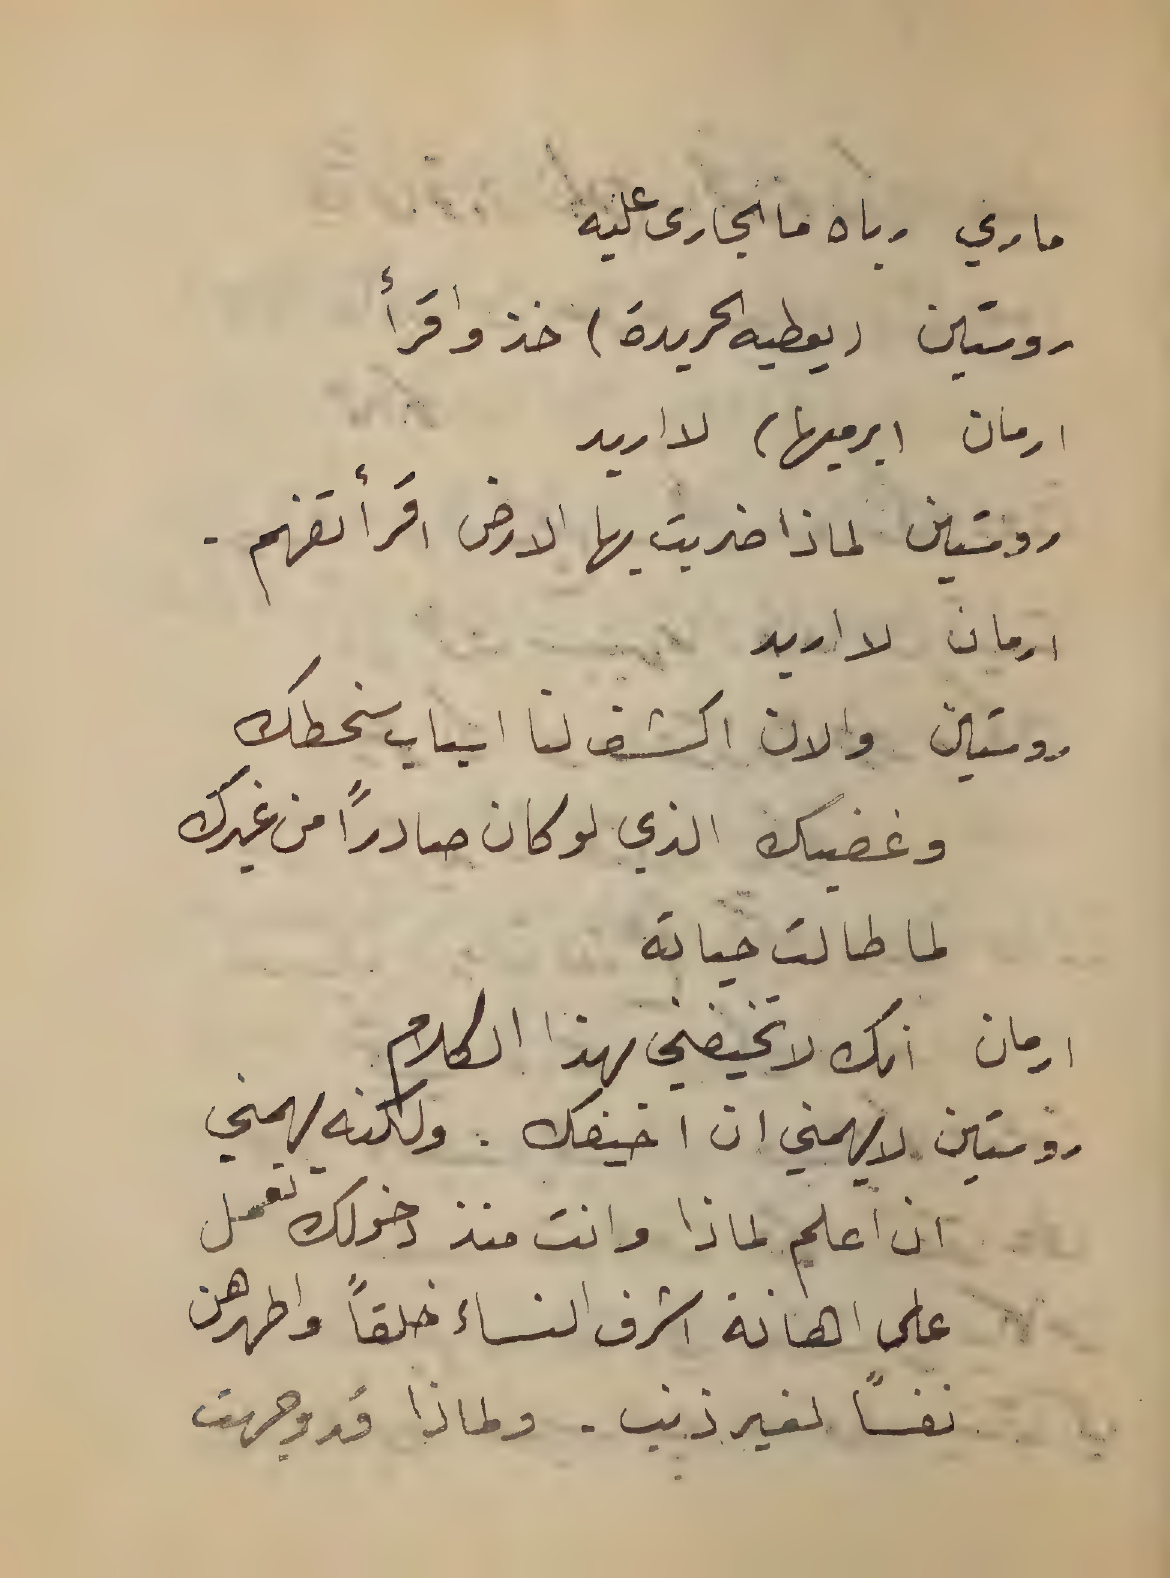 ماري رباه ما الجارى عليه
روستين (يعطيه الجريدة) خذ واقرأ
ارمان (يرميها) لا اريد
روستين لماذا ضربت بها الارض اقرأ تفهم .
ارمان لا اريد
روستين والان اكشف لنا اسباب سخطك
وغضبك الذي لو كان صادراً من غيرك
لما طالت حياته
ارمان انك لا تخيفني بهذا الكلام
روستين لا يهمني ان اخيفك . ولكنه يهمني
ان اعلم لماذا وانت منذ دخولك تعمل
على اهانة اشرف النساء خلقاً واطهرهن
نفساً لغير ذنب . ولماذا قد وجهت